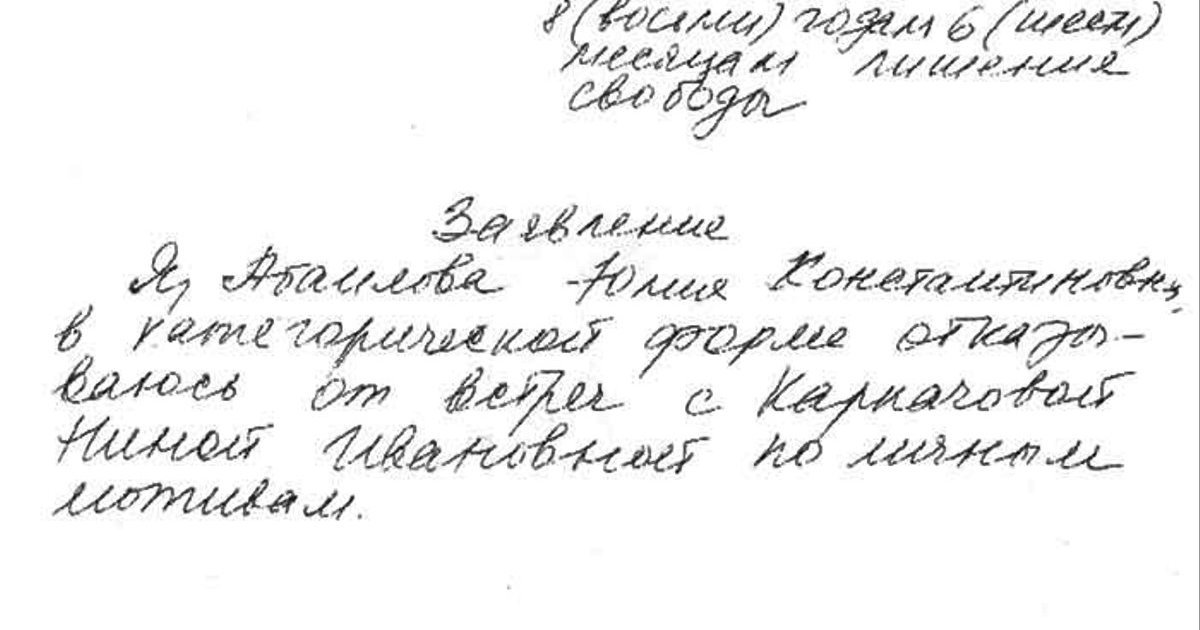 8 (восьми) годам 6 (шести)
месяцам лишения
свободы
Заявление
Я, Абаилова Юлия Константиновна,
в категорической форме отказы-
ваюсь от встреч с Карпачовой
Ниной Ивановной по личным
мотивам.